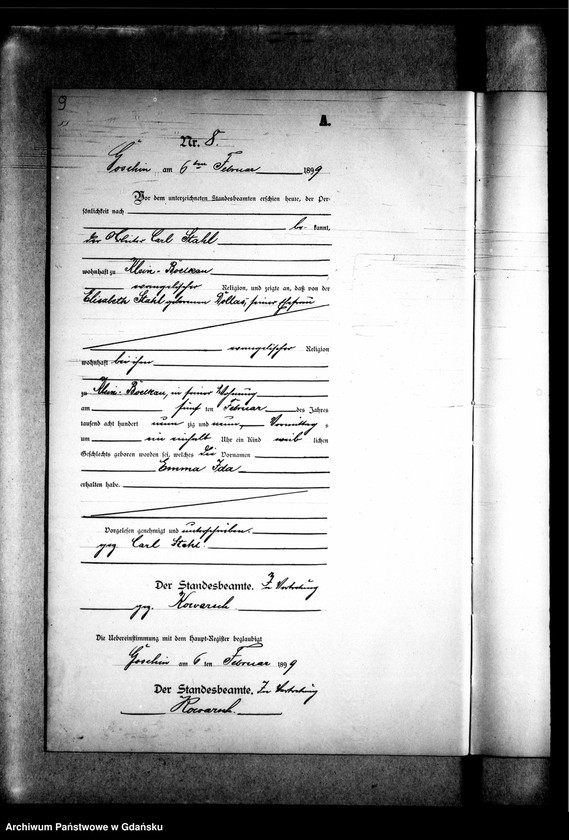 9
A.
Nr. 8.
Goschin am 6ten Februar 1899
Vor dem unterzeichneten Standesbeamten erschien heute, der Per-
sönlichkeit nach
be- kannt,
der Carl Stahl
wohnhaft zu Klein-Boelkau
evangelischer Religion, und zeigte an, daß von der
Elisabeth Stahl geborenen Döllas, seiner Ehefrau
evangelischer Religion
wohnhaft bei ihm
zu Klein-Boelkau, in seiner Wohnung
am fünf ten Februar des Jahres
tausend acht hundert neun zig und neun, Vormittag s
um ein einhalb Uhr ein Kind weib lichen
Geschlechts geboren worden sei, welches die Vornamen
Emma Ida
erhalten habe.
Vorgelesen genehmigt und unterschrieben.
gez. Carl Stahl.
Der Standesbeamte. In Vertretung
gez. Kowarsch
Die Uebereinstimmung mit dem Haupt-Register beglaubigt
Goschin am 6 ten Februar 1899
Der Standesbeamte. In Vertretung
Kowarsch.
Archiwum Państwowe w Gdańsku